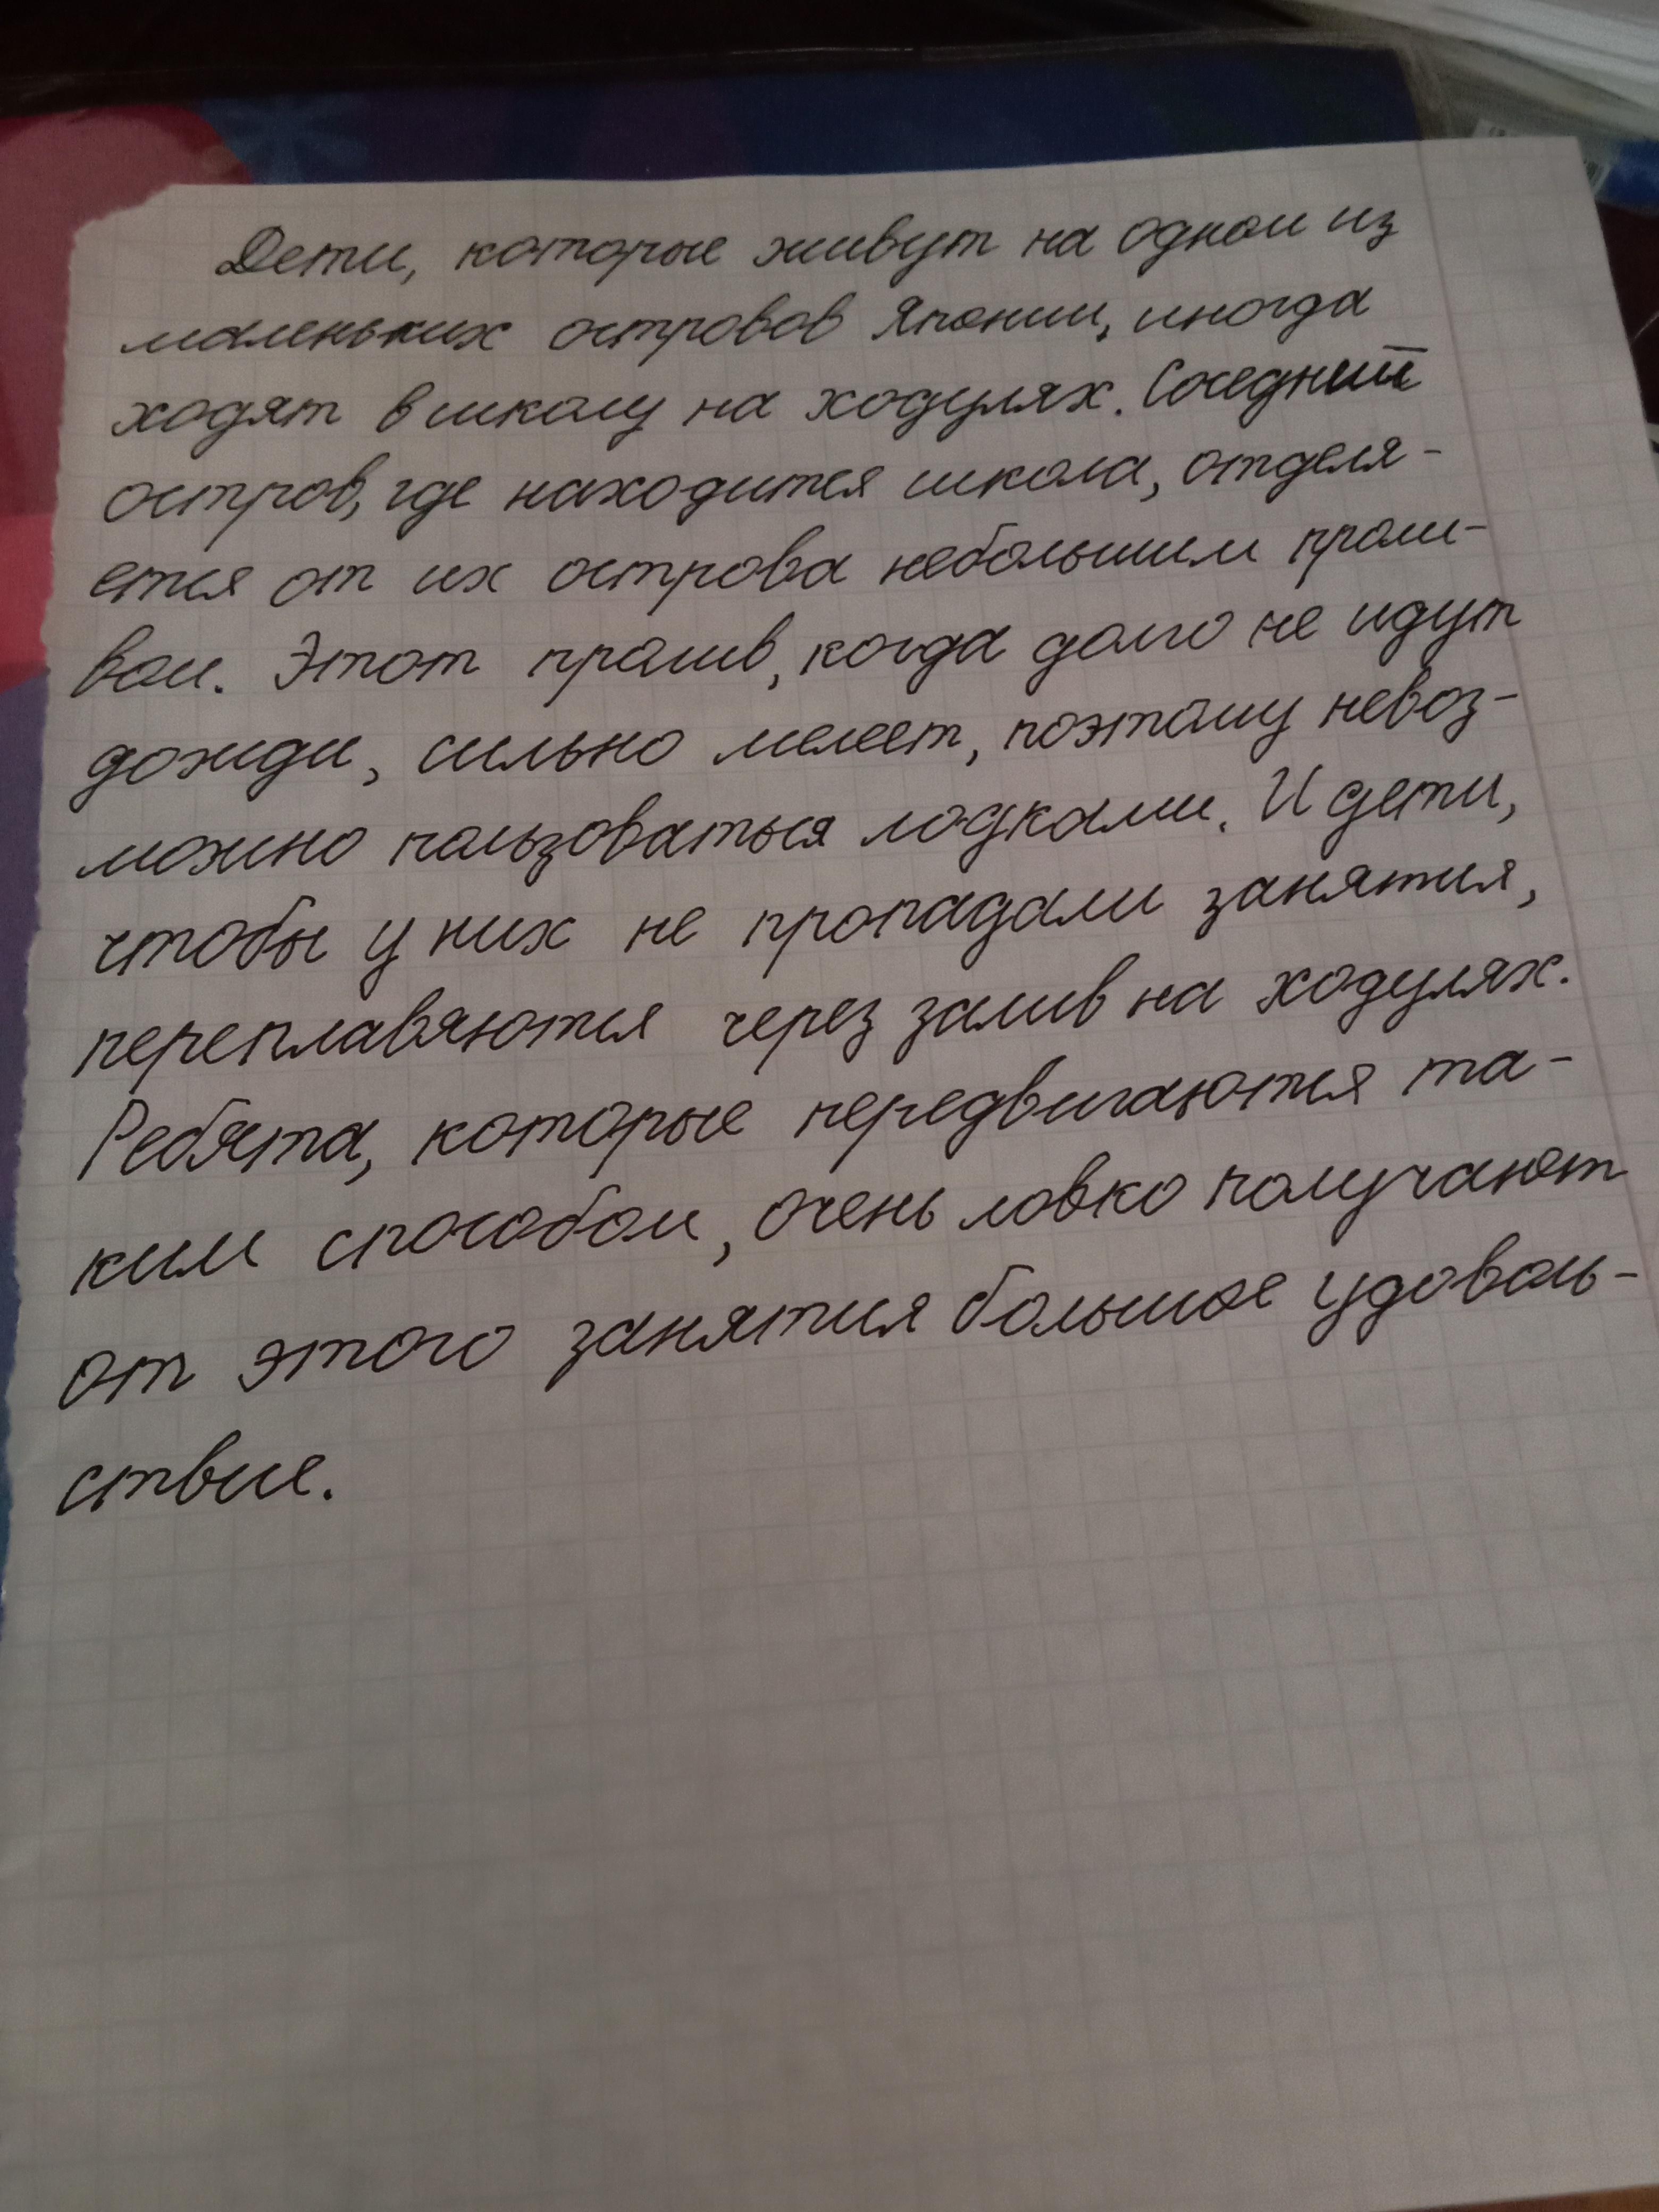 Дети, которые живут на одном из
маленьких островов Японии, иногда
ходят в школу на ходулях. Соседний
остров, где находится школа, отделя-
ется от их острова небольшим проли-
вом. Этот пролив, когда долго не идут
дожди, сильно мелеет, поэтому невоз-
можно пользоваться лодками. И дети,
чтобы у них не пропадали занятия,
переплавяются через залив на ходулях.
Ребята, которые передвигаются та-
ким способом, очень ловко получают
от этого занятия большое удоволь-
ствие.